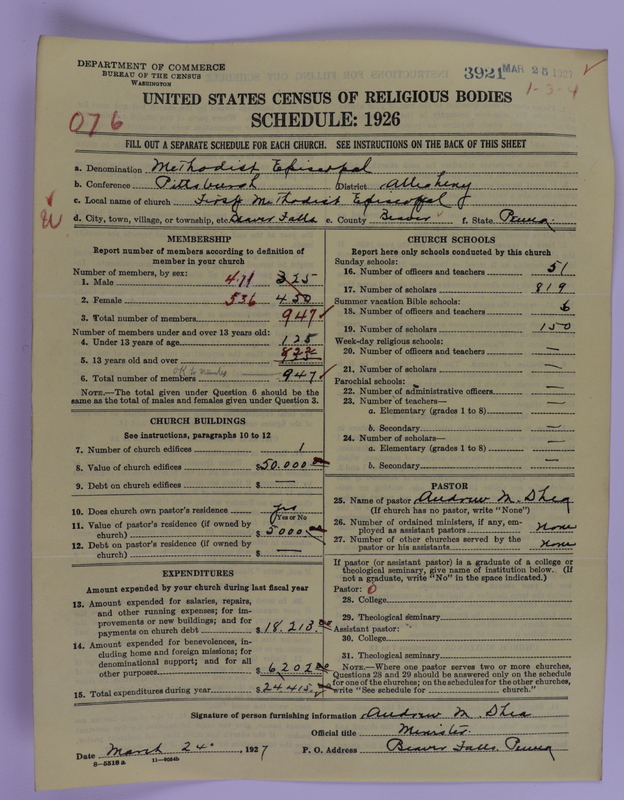 DEPARTMENT OF COMMERCE
BUREAU OF THE CENSUS
WASHINGTON
3921 MAR 25 1927
1-3-4
UNITED STATES CENSUS OF RELIGIOUS BODIES
SCHEDULE: 1926
076
FILL OUT A SEPARATE SCHEDULE FOR EACH CHURCH. SEE INSTRUCTIONS ON THE BACK OF THIS SHEET
a. Denomination Methodist Episcopal
b. Conference Pittsburgh District Allegheny
c. Local name of church First Methodist Episcopal
d. City, town, village, or township, etc. Beaver Falls e. County Beaver f. State Penna.
MEMBERSHIP
Report number of members according to definition of
member in your church
Number of members, by sex:
1. Male 411 325
2. Female 536 450
3. Total number of members 947
Number of members under and over 13 years old:
4. Under 13 years of age 125
5. 13 years old and over 822
6. Total number of members 947
NOTE.—The total given under Question 6 should be
same as the total of males and females given under Question 3.
CHURCH BUILDINGS
See instructions, paragraphs 10 to 12
7. Number of church edifices 1
8. Value of church edifices $50.000
9. Debt on church edifices $ —
10. Does church own pastor's residence yes
(Yes or No)
11. Value of pastor's residence (if owned by
church) $ 5000
12. Debt on pastor's residence (if owned by
church) $ —
EXPENDITURES
Amount expended by your church during last fiscal year
13. Amount expended for salaries, repairs,
and other running expenses; for im-
provements or new buildings; and for
payments on church debt $ 18.213.00
14. Amount expended for benevolences, in-
cluding home and foreign missions; for
denominational support; and for all
other purposes $ 6202.00
15. Total expenditures during year $ 24415.
CHURCH SCHOOLS
Report here only schools conducted by this church
Sunday schools:
16. Number of officers and teachers 51
17. Number of scholars 819
Summer vacation Bible schools:
18. Number of officers and teachers 6
19. Number of scholars 150
Week-day religious schools:
20. Number of officers and teachers —
21. Number of scholars —
Parochial schools:
22. Number of administrative officers —
23. Number of teachers—
a. Elementary (grades 1 to 8) —
b. Secondary —
24. Number of scholars—
a. Elementary (grades 1 to 8) —
b. Secondary —
PASTOR
25. Name of pastor Andrew M. Shea
(If church has no pastor, write "None")
26. Number of ordained ministers, if any, em-
ployed as assistant pastors none
27. Number of other churches served by the
pastor or his assistants none
If pastor (or assistant pastor) is a graduate of a college or
theological seminary, give name of institution below. (If
not a graduate, write "No" in the space indicated.)
Pastor: 0
28. College
29. Theological seminary
Assistant pastor:
30. College
31. Theological seminary
NOTE.—Where one pastor serves two or more churches,
Questions 28 and 29 should be answered only on the schedule
for one of the churches; on the schedules for the other churches,
write "See schedule for church."
Signature of person furnishing information Andrew M. Shea
Official title Minister.
Date March 24, 1927 P. O. Address Beaver Falls, Penna
8-5518a 11-9054b